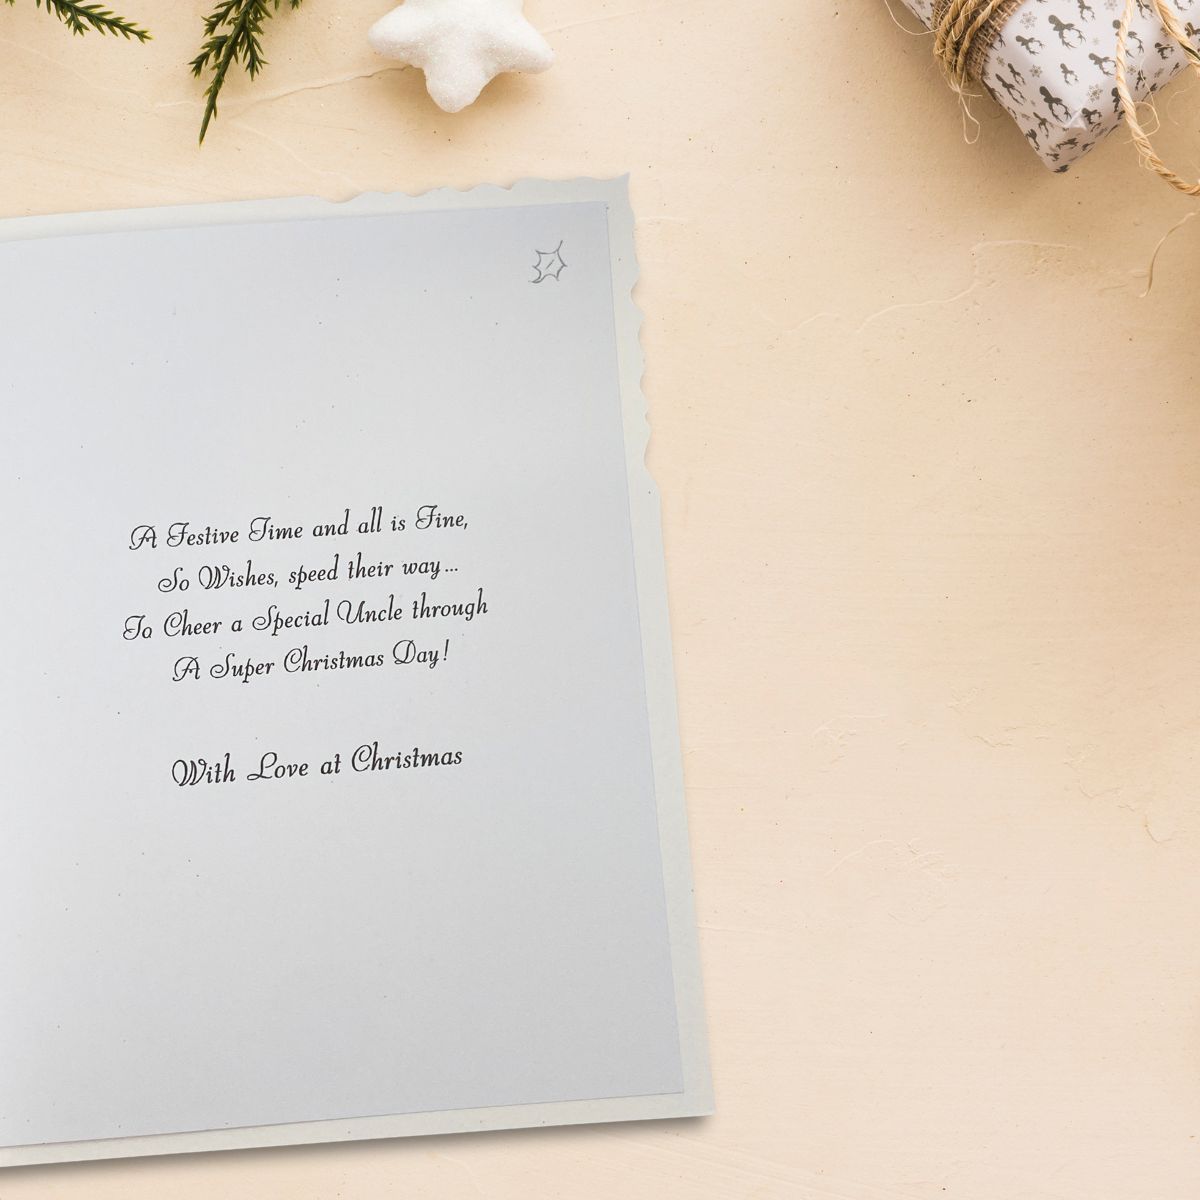 A Festive Time and all is Fine,
So Wishes, speed their way...
To Cheer a Special Uncle through
A Super Christmas Day!
With Love at Christmas